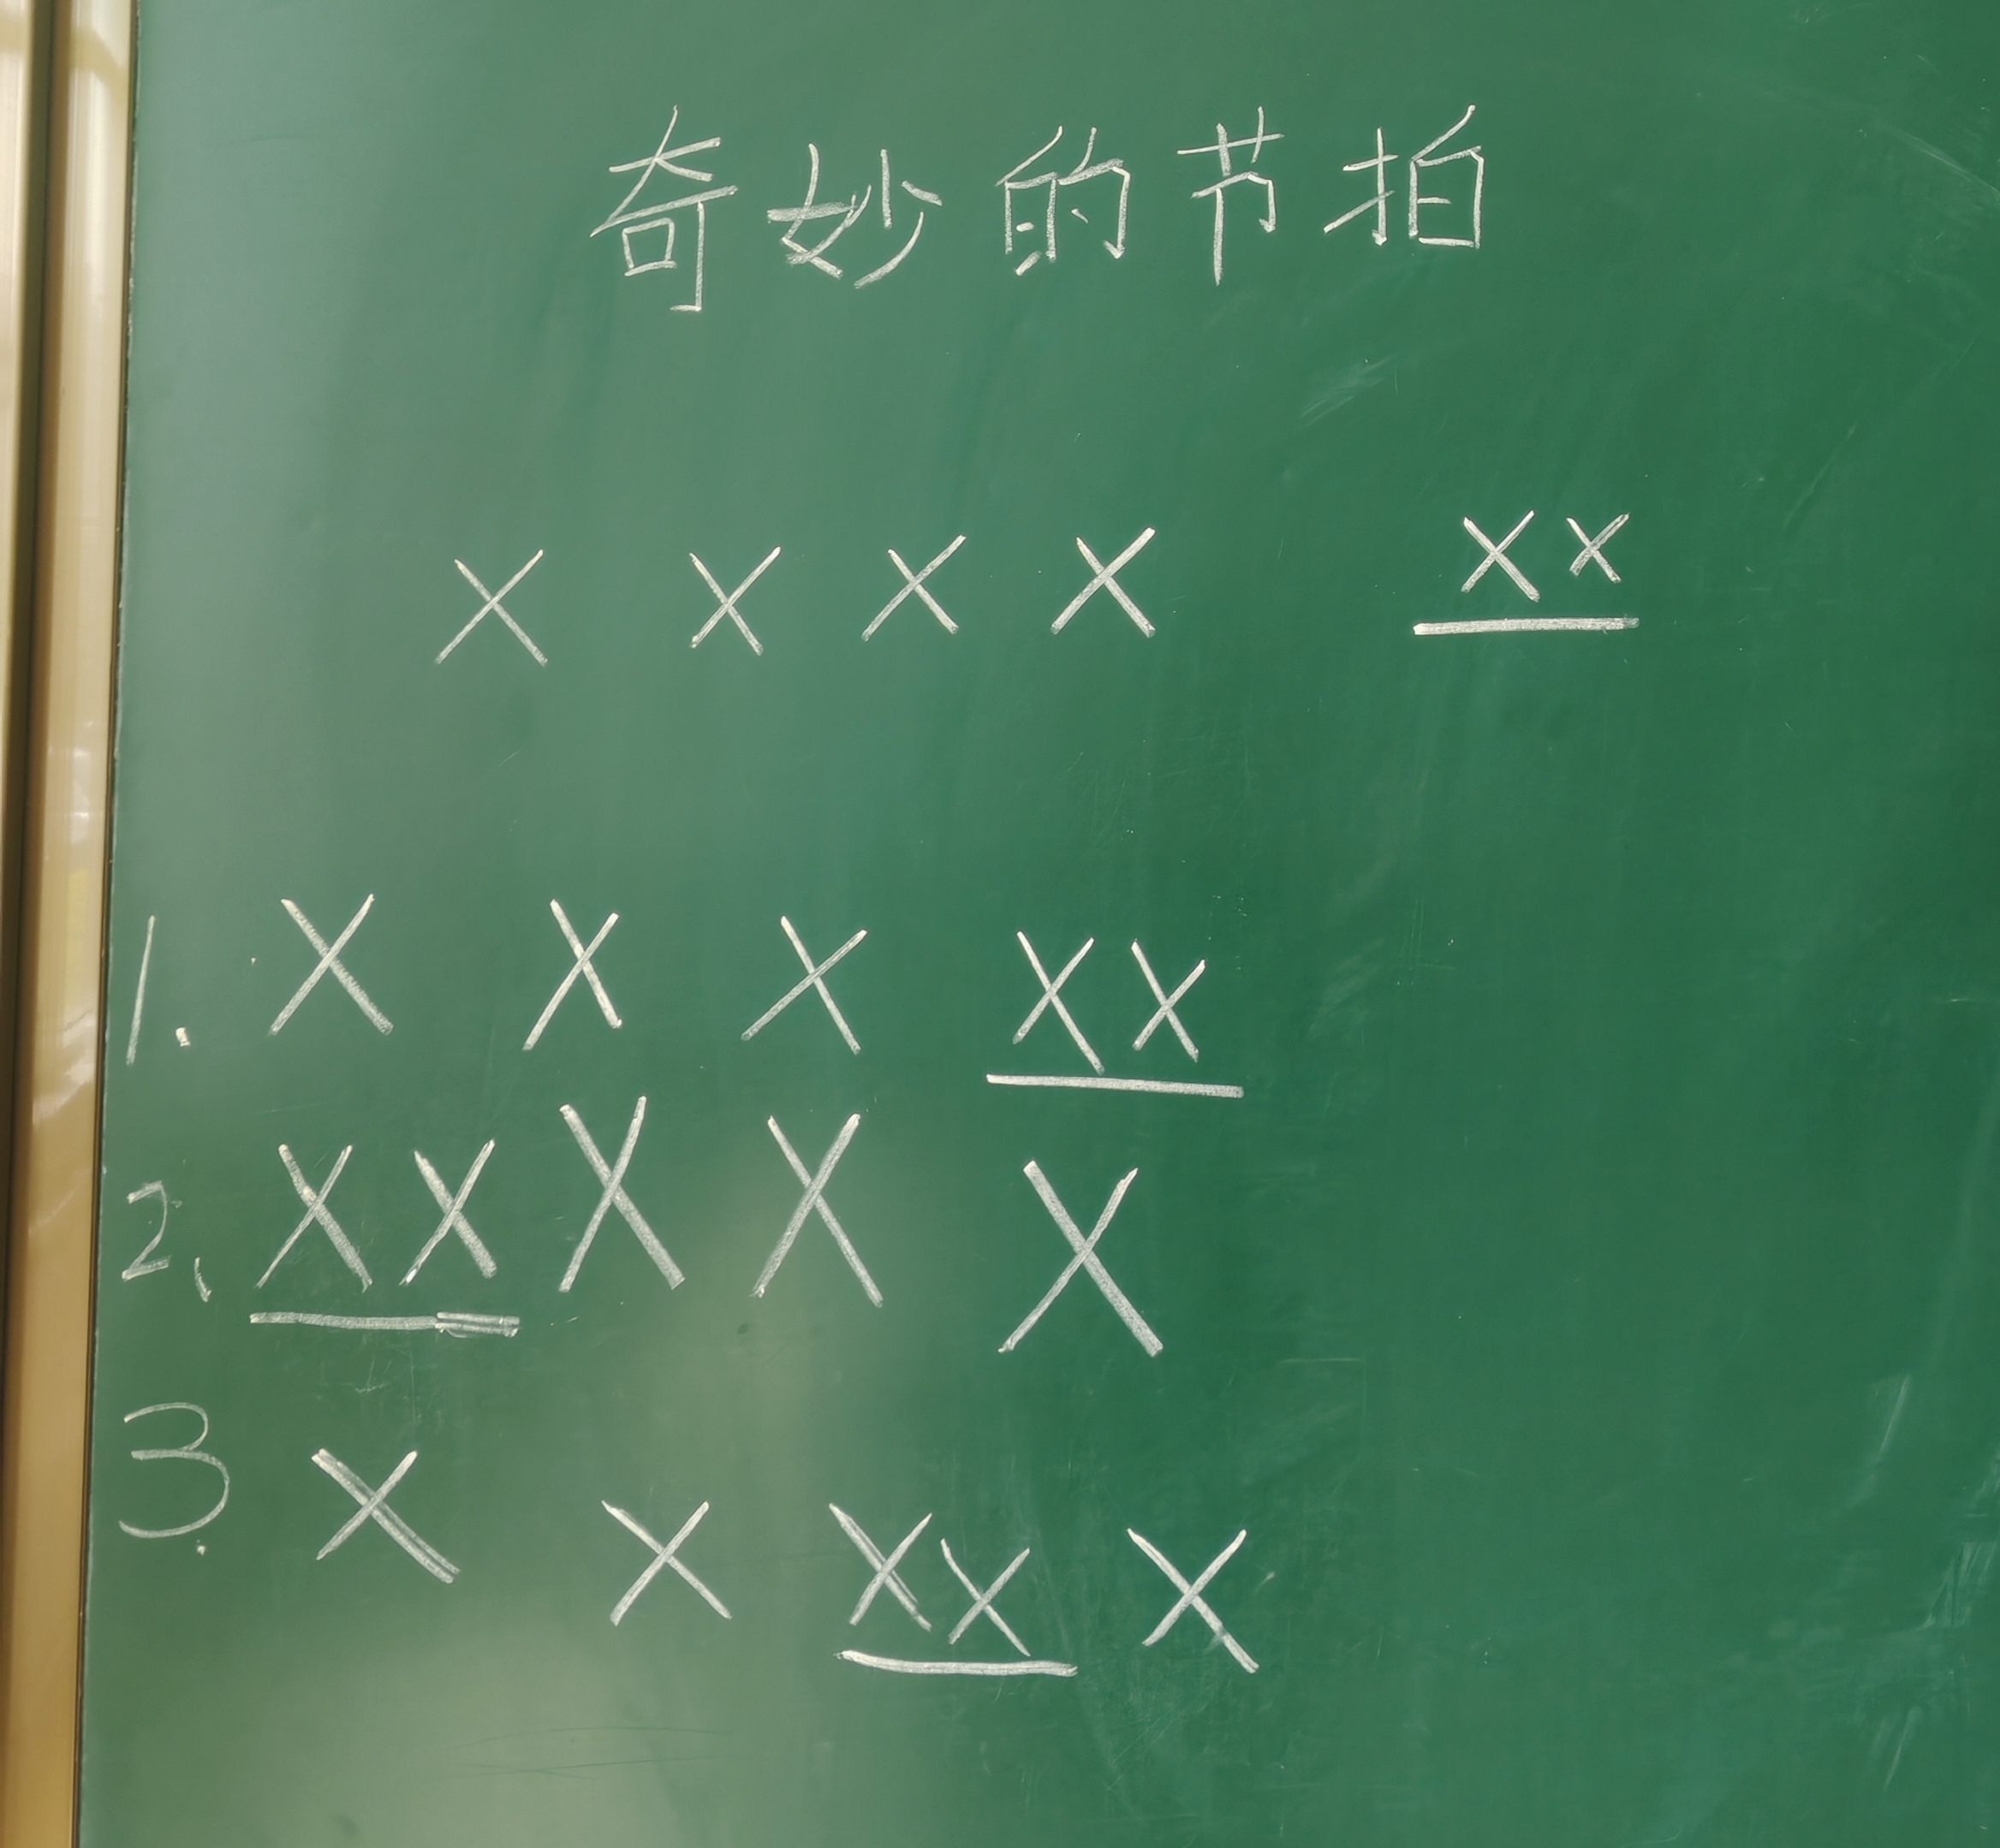 奇妙的节拍
X X X X XX
1. X X X XX
2. XX X X X
3. X X XX X